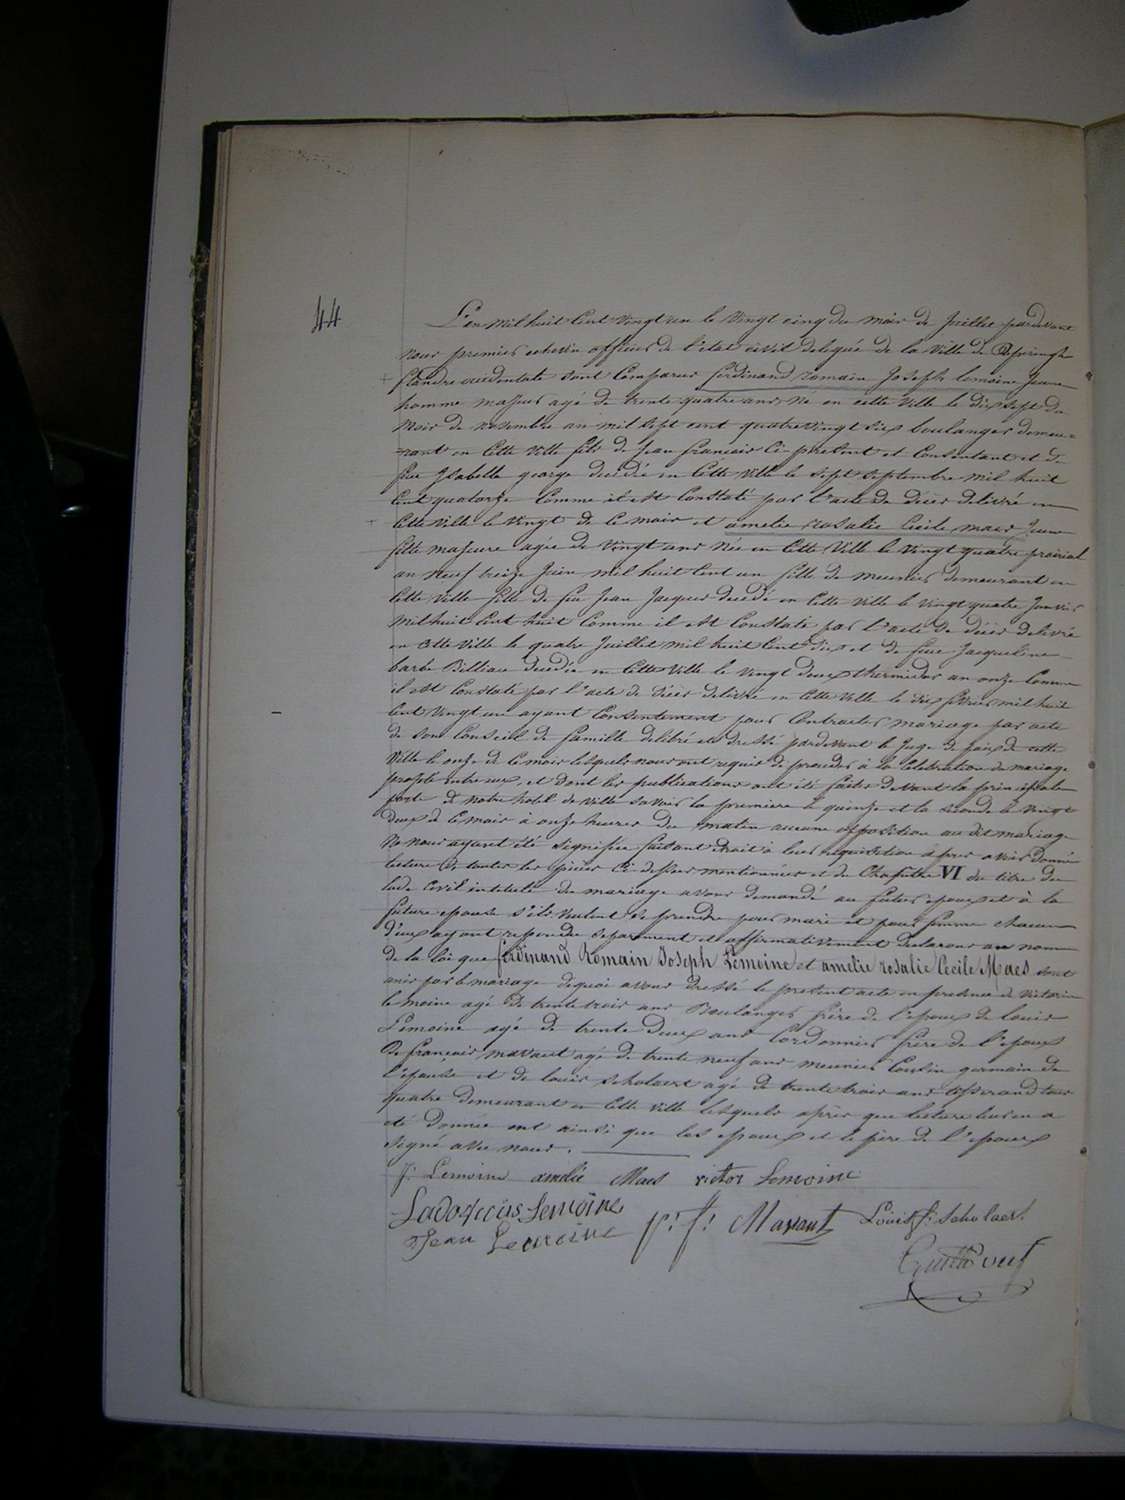 44
L'an mil huit Cent vingt un le vingt cinq du mois de Juillet pardevant
nous premier echevin officier de l'état civil delegué de la Ville de Poperinghe
flandre occidentale sont Comparus ferdinand romain Joseph lemoine Jeune
homme majeur agé de trente quatre ans né en cette Ville le dix sept du
Mois de novembre an mil sept cent quatrevingt six boulanger demeu-
rant en Cette Ville fils de Jean francois Ci present et Consentant et de
feue Isabelle george decedée en Cette Ville le sept septembre mil huit
Cent quatorze Comme il est Constaté par l'acte de décès delivré en
Cette Ville le vingt de Ce mois et amelie rosalie Cecile maes Jeune
fille majeure agée de vingt ans née en Cette Ville le vingt quatre prairial
an neuf treize Juin mil huit Cent un fille de meunier demeurant en
Cette Ville fille de feu Jean Jacques decedé en Cette Ville le vingt quatre Janvier
mil huit Cent huit Comme il est Constaté par l'acte de décès delivré
en Cette Ville le quatre Juillet mil huit Cent dix et de feue Jacqueline
barbe Billiau decedée en Cette Ville le vingt deux thermidor an onze Comme
il est Constaté par l'acte de décès delivré en Cette Ville le dix fevrier mil huit
Cent vingt un ayant Consentement pour Contracter mariage par acte
de son Conseil de famille delibré et dressé pardevant le Juge de paix de cette
Ville le onze de Ce mois lesquels nous ont requis de proceder à la Celebration du mariage
projeté entre eux, et dont les publications ont été faites devant la principale
porte de notre hotel de Ville savoir la premiere le quinze et la seconde le vingt
deux de Ce mois à onze heures du matin aucune opposition au dit mariage
ne nous ayant été signifiée faisant droit à leur requisition apres avoir donné
lecture de toutes les pièces Ci dessus mentionnées et du Chapitre VI du titre du
Code Civil intitulé du mariage avons demandé au futur epoux et à la
future epouse s'ils veulent se prendre pour mari et pour femme chacun
d'eux ayant repondu separement et affirmativement declarons au nom
de la loi que ferdinand Romain Joseph Lemoine et amelie rosalie Cecile Maes sont
unis par le mariage dequoi avons dressé le present acte en presence de victor
lemoine agé de trente trois ans Boulanger frère de l'epoux de louis
Lemoine agé de trente deux ans Cordonnier frère de l'epoux
De francois mavaut agé de trente neuf ans meunier Cousin germain de
l'epouse et de louis scholaert agé de trente trois ans tisserand tous
quatre demeurant en Cette Ville lesquels apres que lecture leur en a
été donnée ont ainsi que les epoux et le père de l'epoux
signé avec nous.
f: Lemoine amelie Maes victor Lemoine
Ladovicus Lemoine
Jean Lemoine p: f: Mavaut Louis f: Scholaert